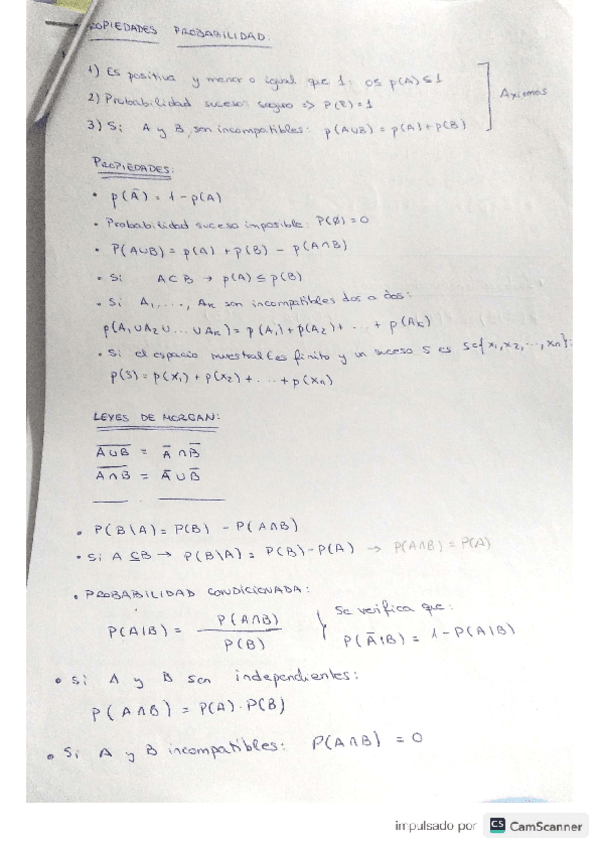 PROPIEDADES PROBABILIDAD.
1) Es positiva y menor o igual que 1: 0≤ p(A) ≤ 1
2) Probabilidad suceso seguro => P(E) = 1
3) Si A y B, son incompatibles: p(A∪B) = p(A) + p(B)
Axiomas
PROPIEDADES:
• p(Ā) = 1 - p(A)
• Probabilidad suceso imposible: P(Ø) = 0
• P(A∪B) = p(A) + p(B) - p(A∩B)
• Si A⊂B → p(A) ≤ p(B)
• Si A₁, ..., Aₖ son incompatibles dos a dos:
p(A₁∪A₂∪...∪Aₖ) = p(A₁) + p(A₂) + ... + p(Aₖ)
• Si el espacio muestral E es finito y un suceso S es S={x₁, x₂, ..., xₙ}:
p(S) = p(x₁) + p(x₂) + ... + p(xₙ)
LEYES DE MORGAN:
A̅∪̅B̅ = Ā ∩ B̅
A̅∩̅B̅ = Ā ∪ B̅
• P(B\A) = P(B) - P(A∩B)
• Si A ⊆ B → P(B\A) = P(B) - P(A) → P(A∩B) = P(A)
• PROBABILIDAD CONDICIONADA:
P(A|B) = P(A∩B) / P(B)
Se verifica que:
P(Ā|B) = 1 - P(A|B)
• Si A y B son independientes:
P(A∩B) = P(A) · P(B)
• Si A y B incompatibles: P(A∩B) = 0
impulsado por CS CamScanner